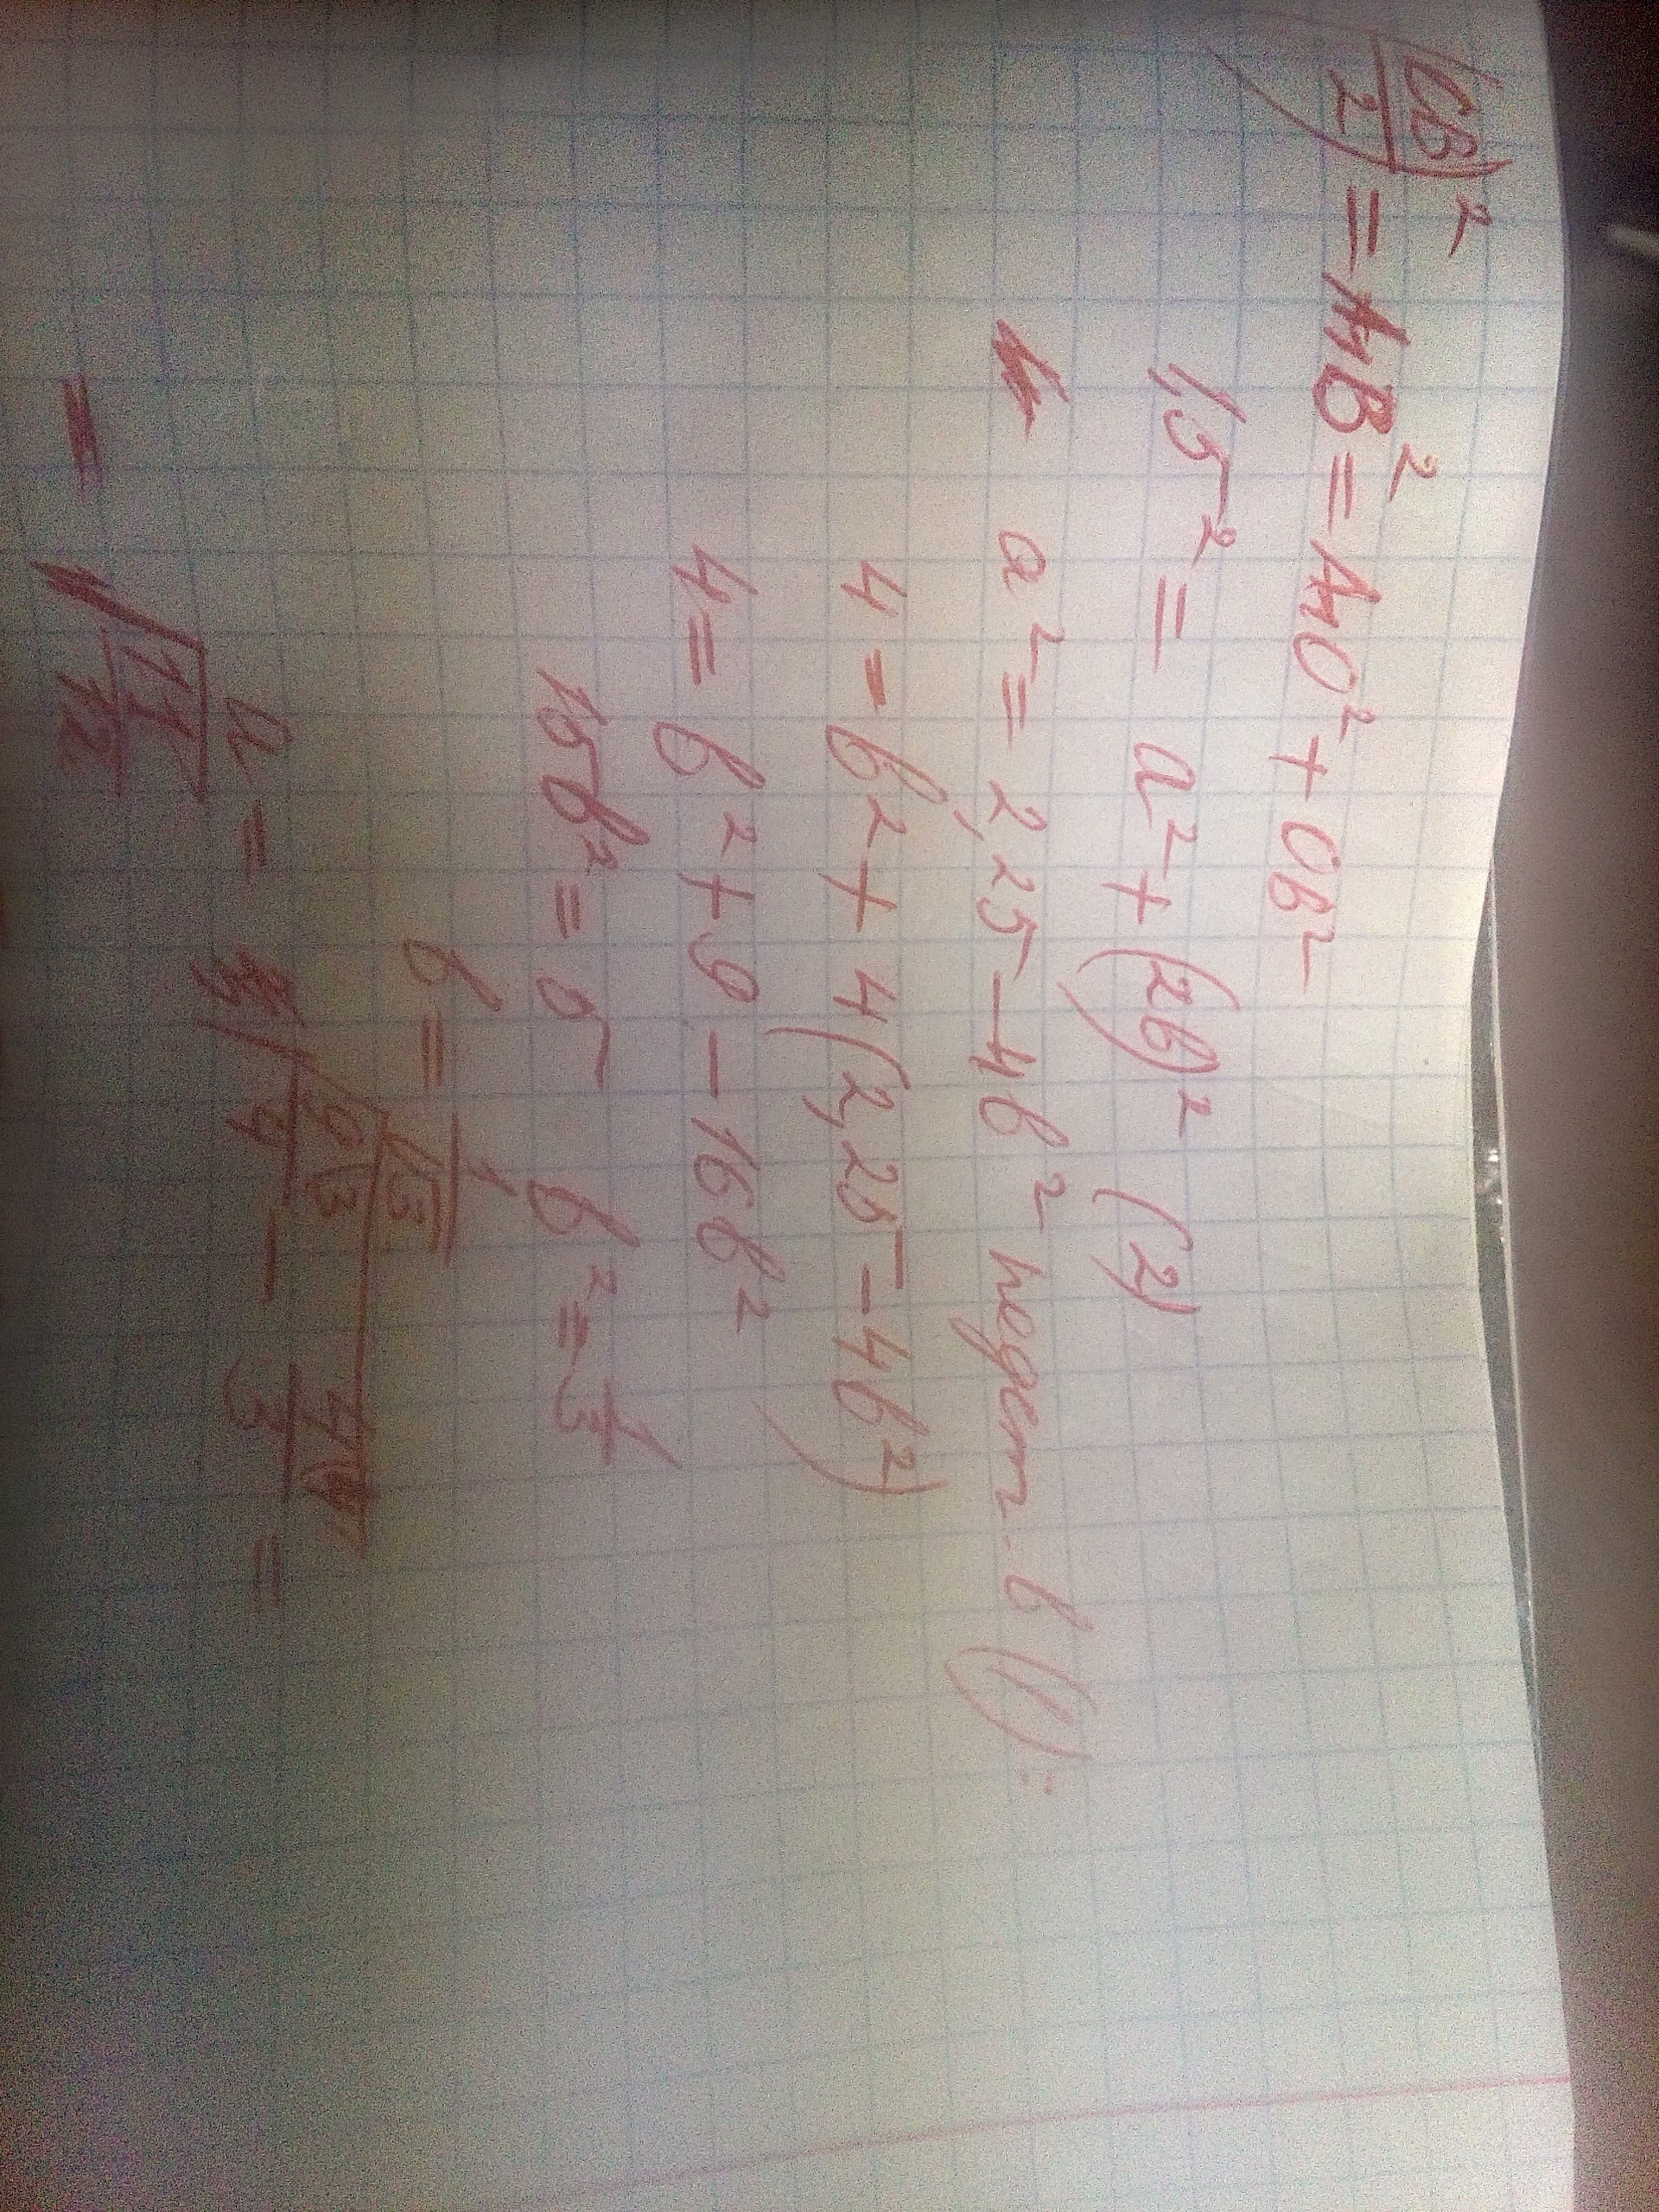 (CB/2)² = MB² = MO² + OB²
1,5² = a² + (2b)² (2)
a² = 2,25 - 4b² подст. в (1):
4 = b² + 4(2,25 - 4b²)
4 = b² + 9 - 16b²
15b² = 5 b² = 1/3
b = 1/√3
a = √(9\3/4 - 4\4/3) =
= √(11/12)